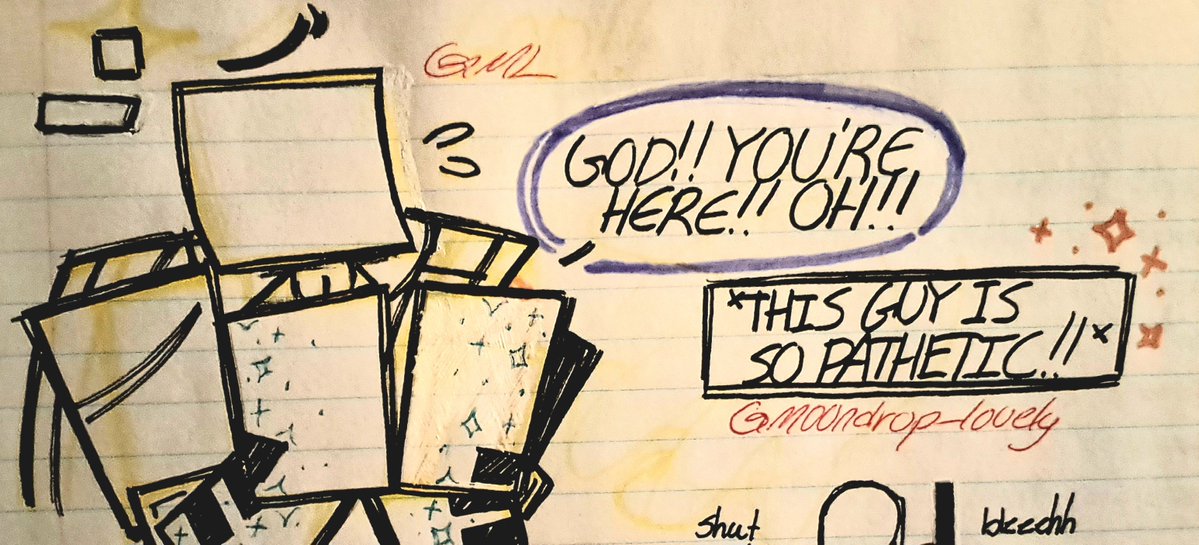 GOD!! YOU'RE
HERE!! OH!!
*THIS GUY IS
SO PATHETIC!!*
@moondrop_lovely
shut